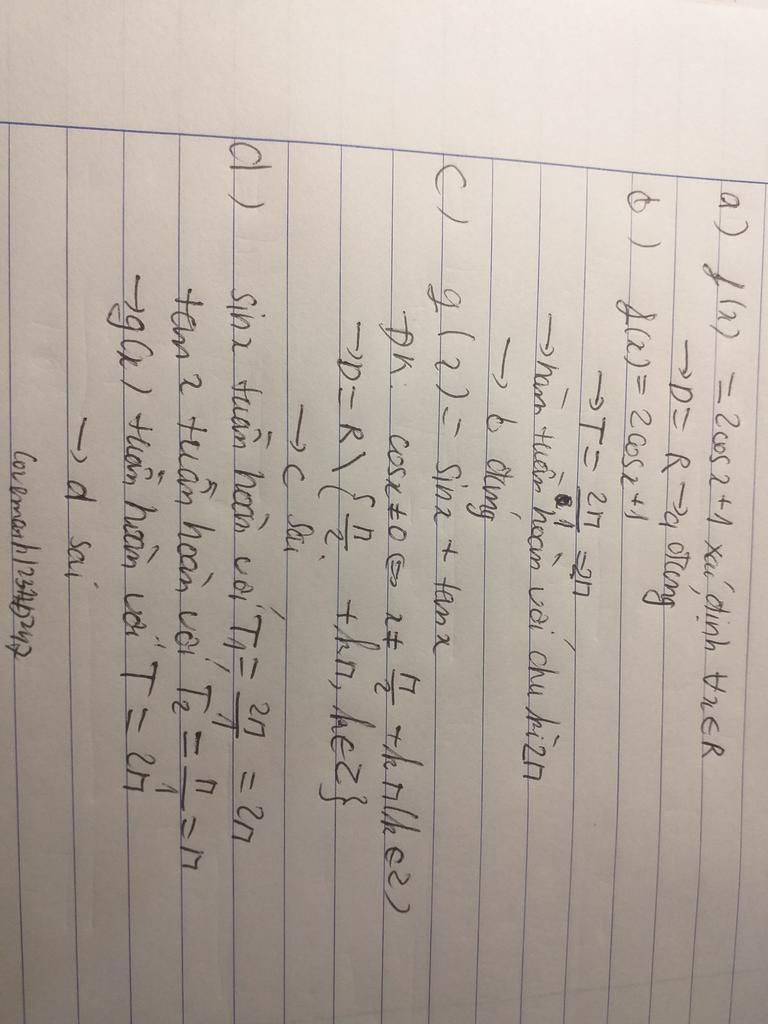 a) f(x) = 2cosx+1 xác định ∀x∈R
→D = R →a đúng
b) f(x) = 2cosx+1
→T = 2π/1 = 2π
→hàm tuần hoàn với chu kì 2π
→ b đúng
c) g(x) = sinx + tanx
ĐK: cosx≠0 ⇔ x≠ π/2 + kπ (k∈Z)
→D = R \ {π/2 + kπ, k∈Z}
→c sai
d) sinx tuần hoàn với T₁ = 2π/1 = 2π
tanx tuần hoàn với T₂ = π/1 = π
→g(x) tuần hoàn với T = 2π
→ d sai